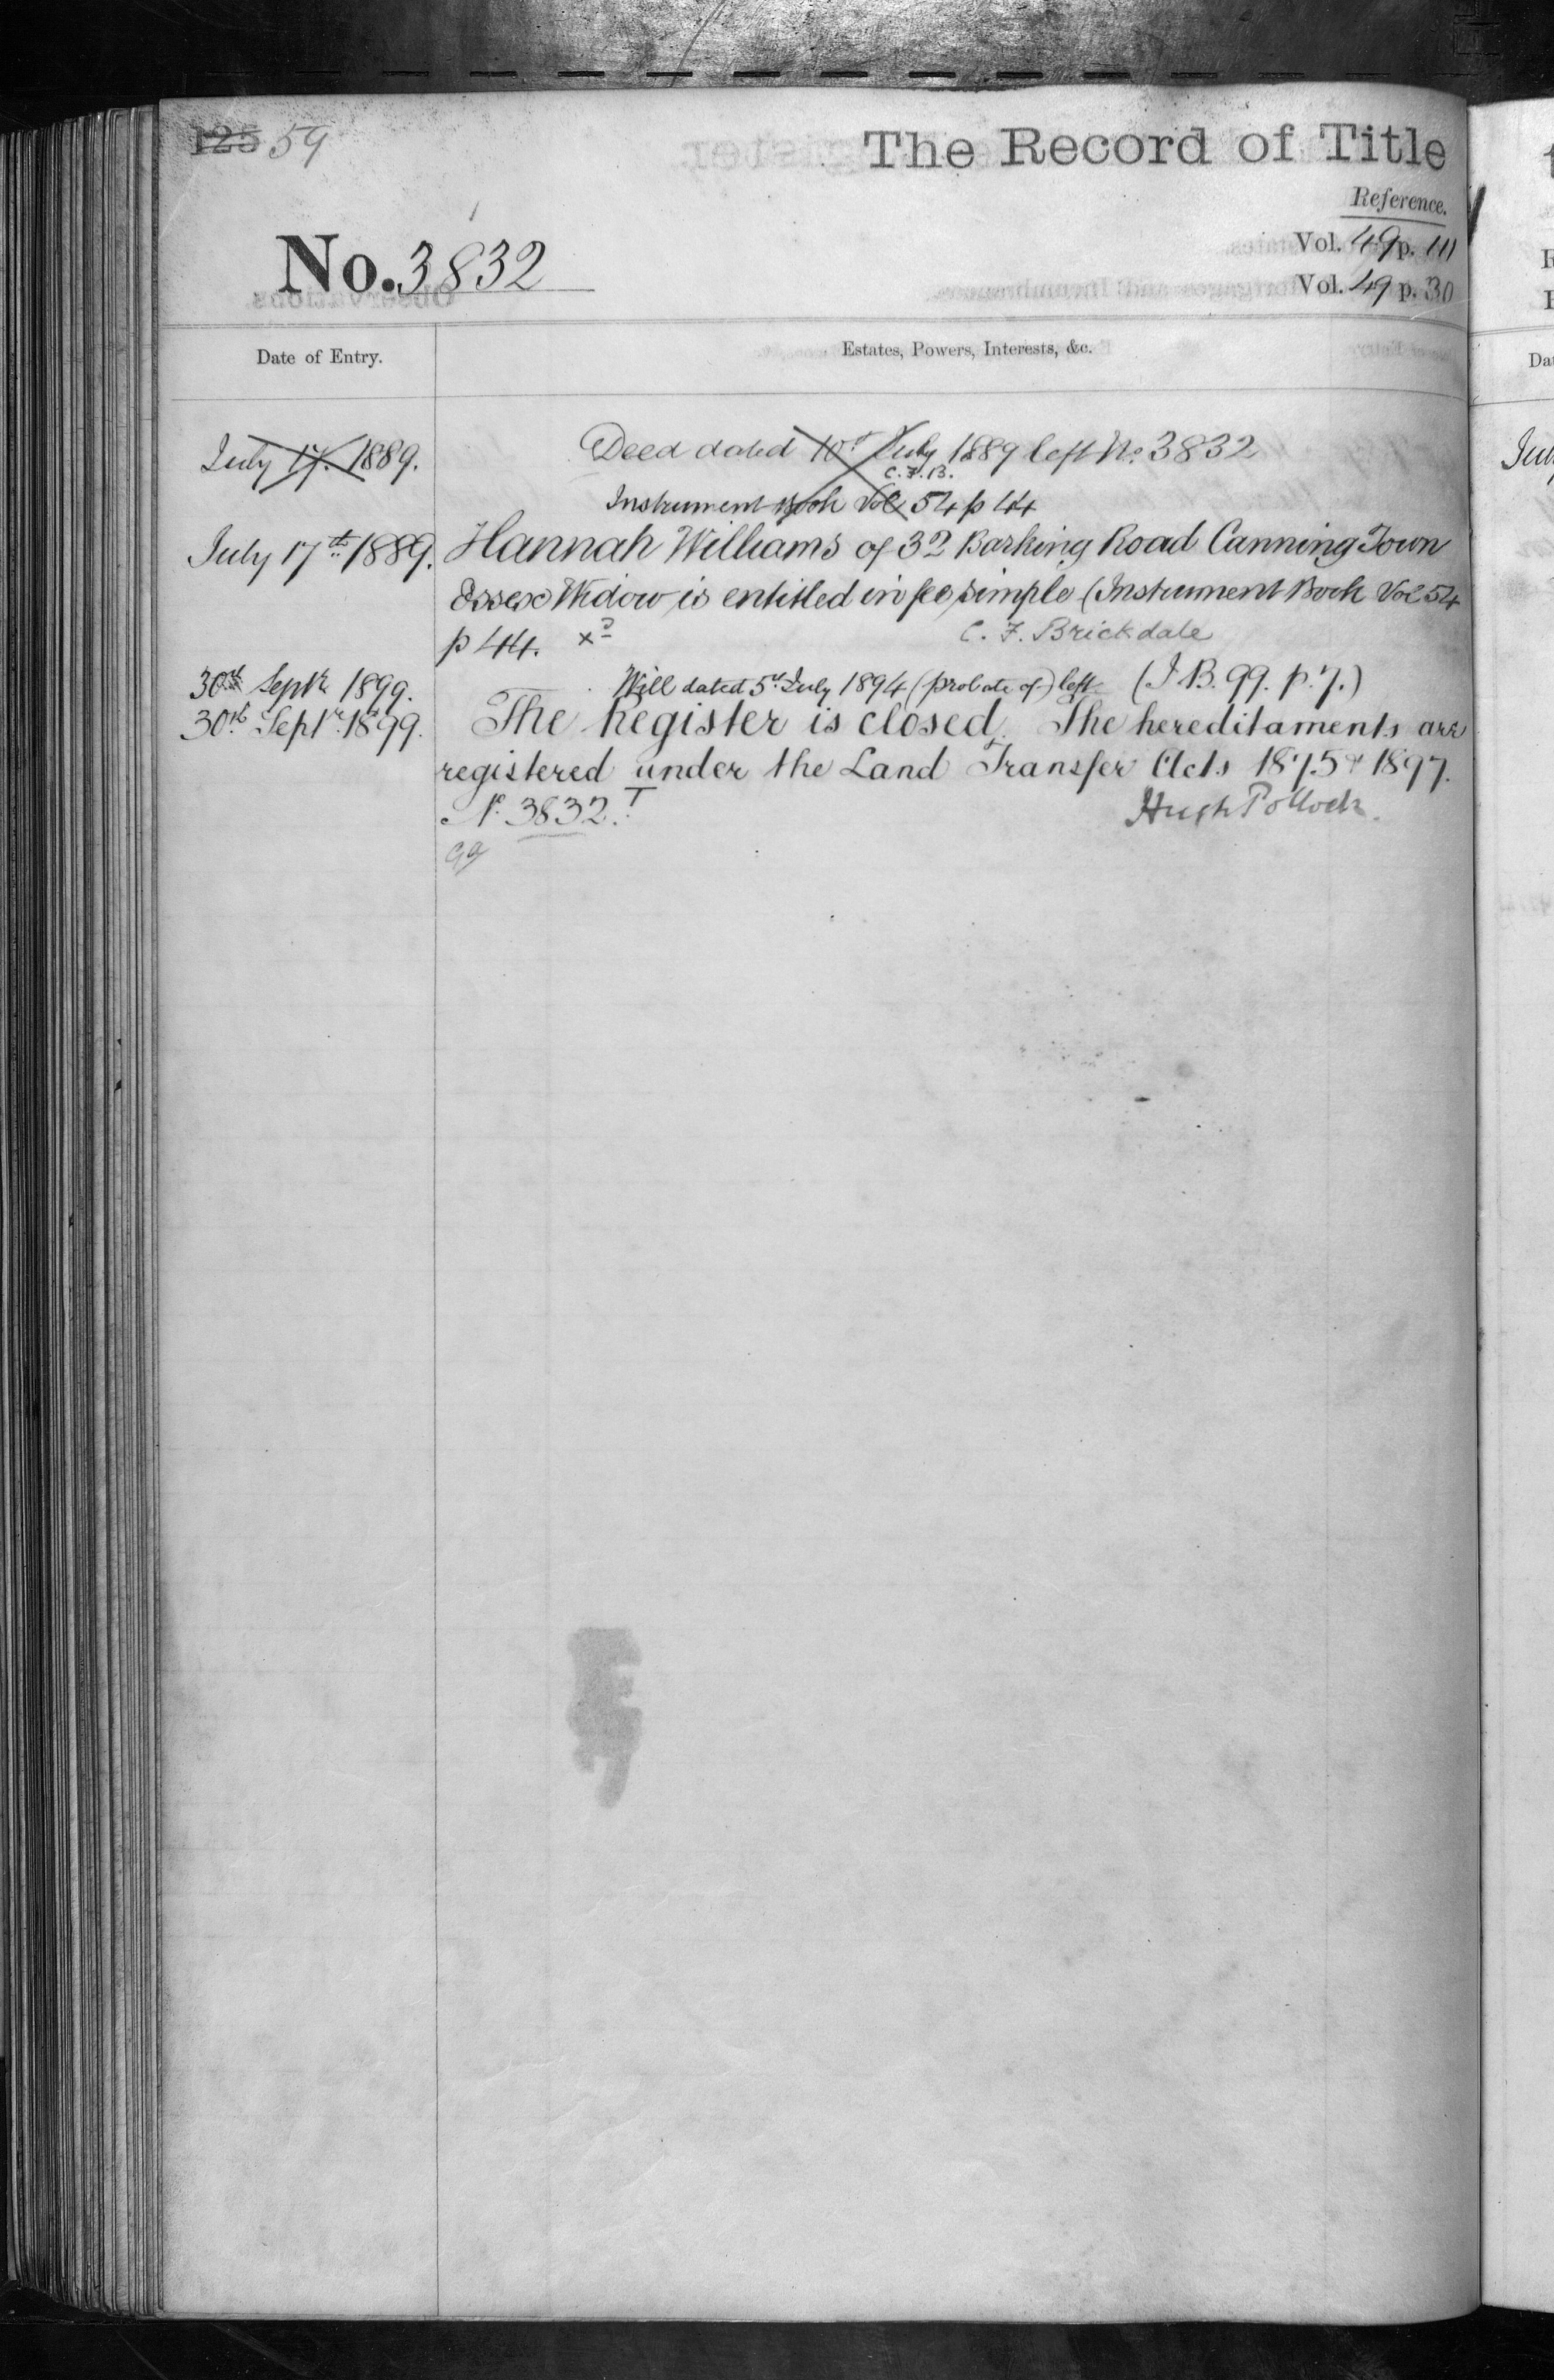 125 59
The Record of Title
Reference.
No. 3832
Vol. 49 p. 111
Vol. 49 p. 30
Date of Entry.
Estates, Powers, Interests, &c.
July 17. 1889.
Deed dated 10th July 1889 left No. 3832
C.F.B.
Instrument Book Vol 54 p 44
July 17th 1889. Hannah Williams of 32 Barking Road Canning Town
Essex Widow is entitled in fee simple (Instrument Book Vol 54
p 44.
C. F. Brickdale
30th Septr 1899. Will dated 5th July 1894 (probate of) left (I.B. 99. p. 7.)
30th Septr 1899. The Register is closed. The hereditaments are
registered under the Land Transfer Acts 1875 & 1897.
No. 3832. T
Hugh Pollock.